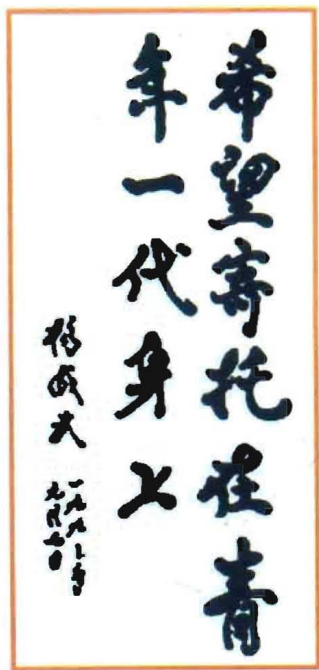 希望寄托在青
年一代身上
杨成武
一九九
九月